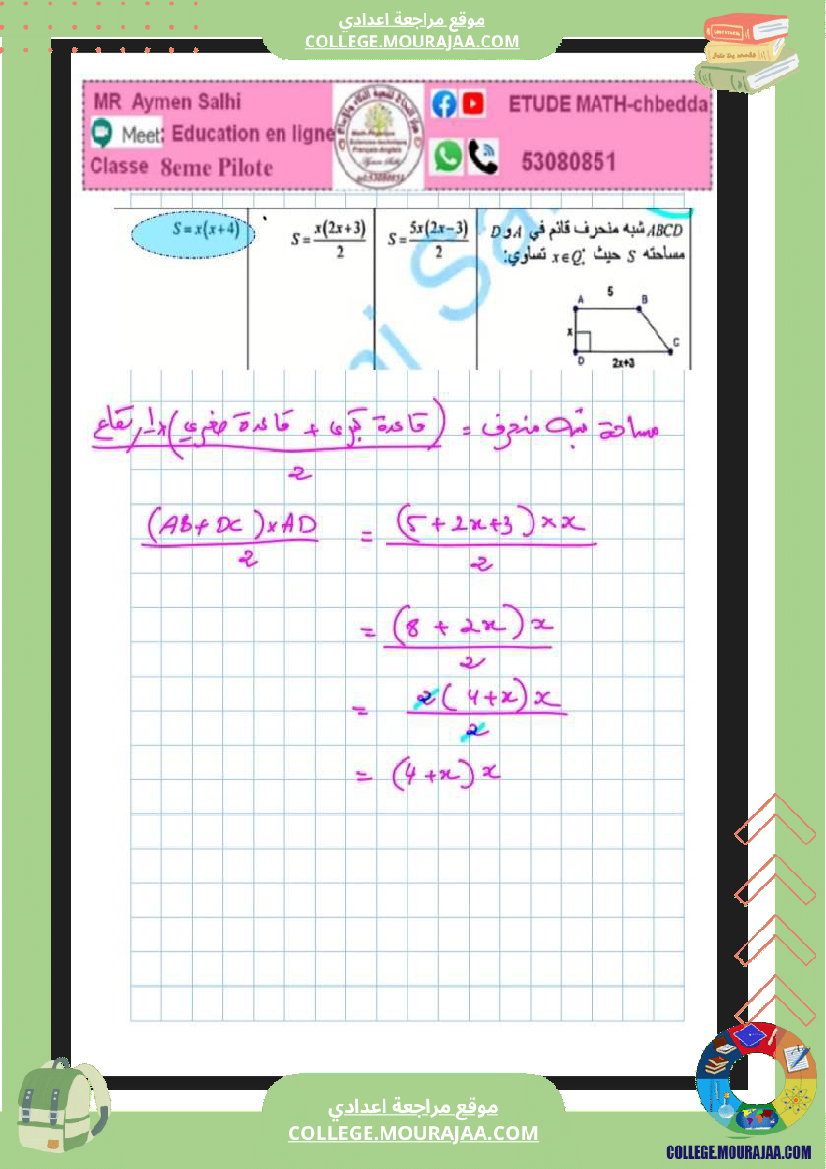 موقع مراجعة اعدادي
COLLEGE.MOURAJAA.COM
MR Aymen Salhi
Meet: Education en ligne
Classe 8eme Pilote
ETUDE MATH-chbedda
53080851
ABCD شبه منحرف قائم في A و D
مساحته S حيث x∈Q; تساوي:
S=5x(2x−3)/2
S=x(2x+3)/2
S=x(x+4)
A 5 B
x
D 2x+3 C
مساحة شبه منحرف = (قاعدة كبرى + قاعدة صغرى)×الارتفاع/2
(AB+DC)×AD/2 = (5+2x+3)×x/2
= (8+2x)x/2
= 2(4+x)x/2
= (4+x)x
موقع مراجعة اعدادي
COLLEGE.MOURAJAA.COM
COLLEGE.MOURAJAA.COM